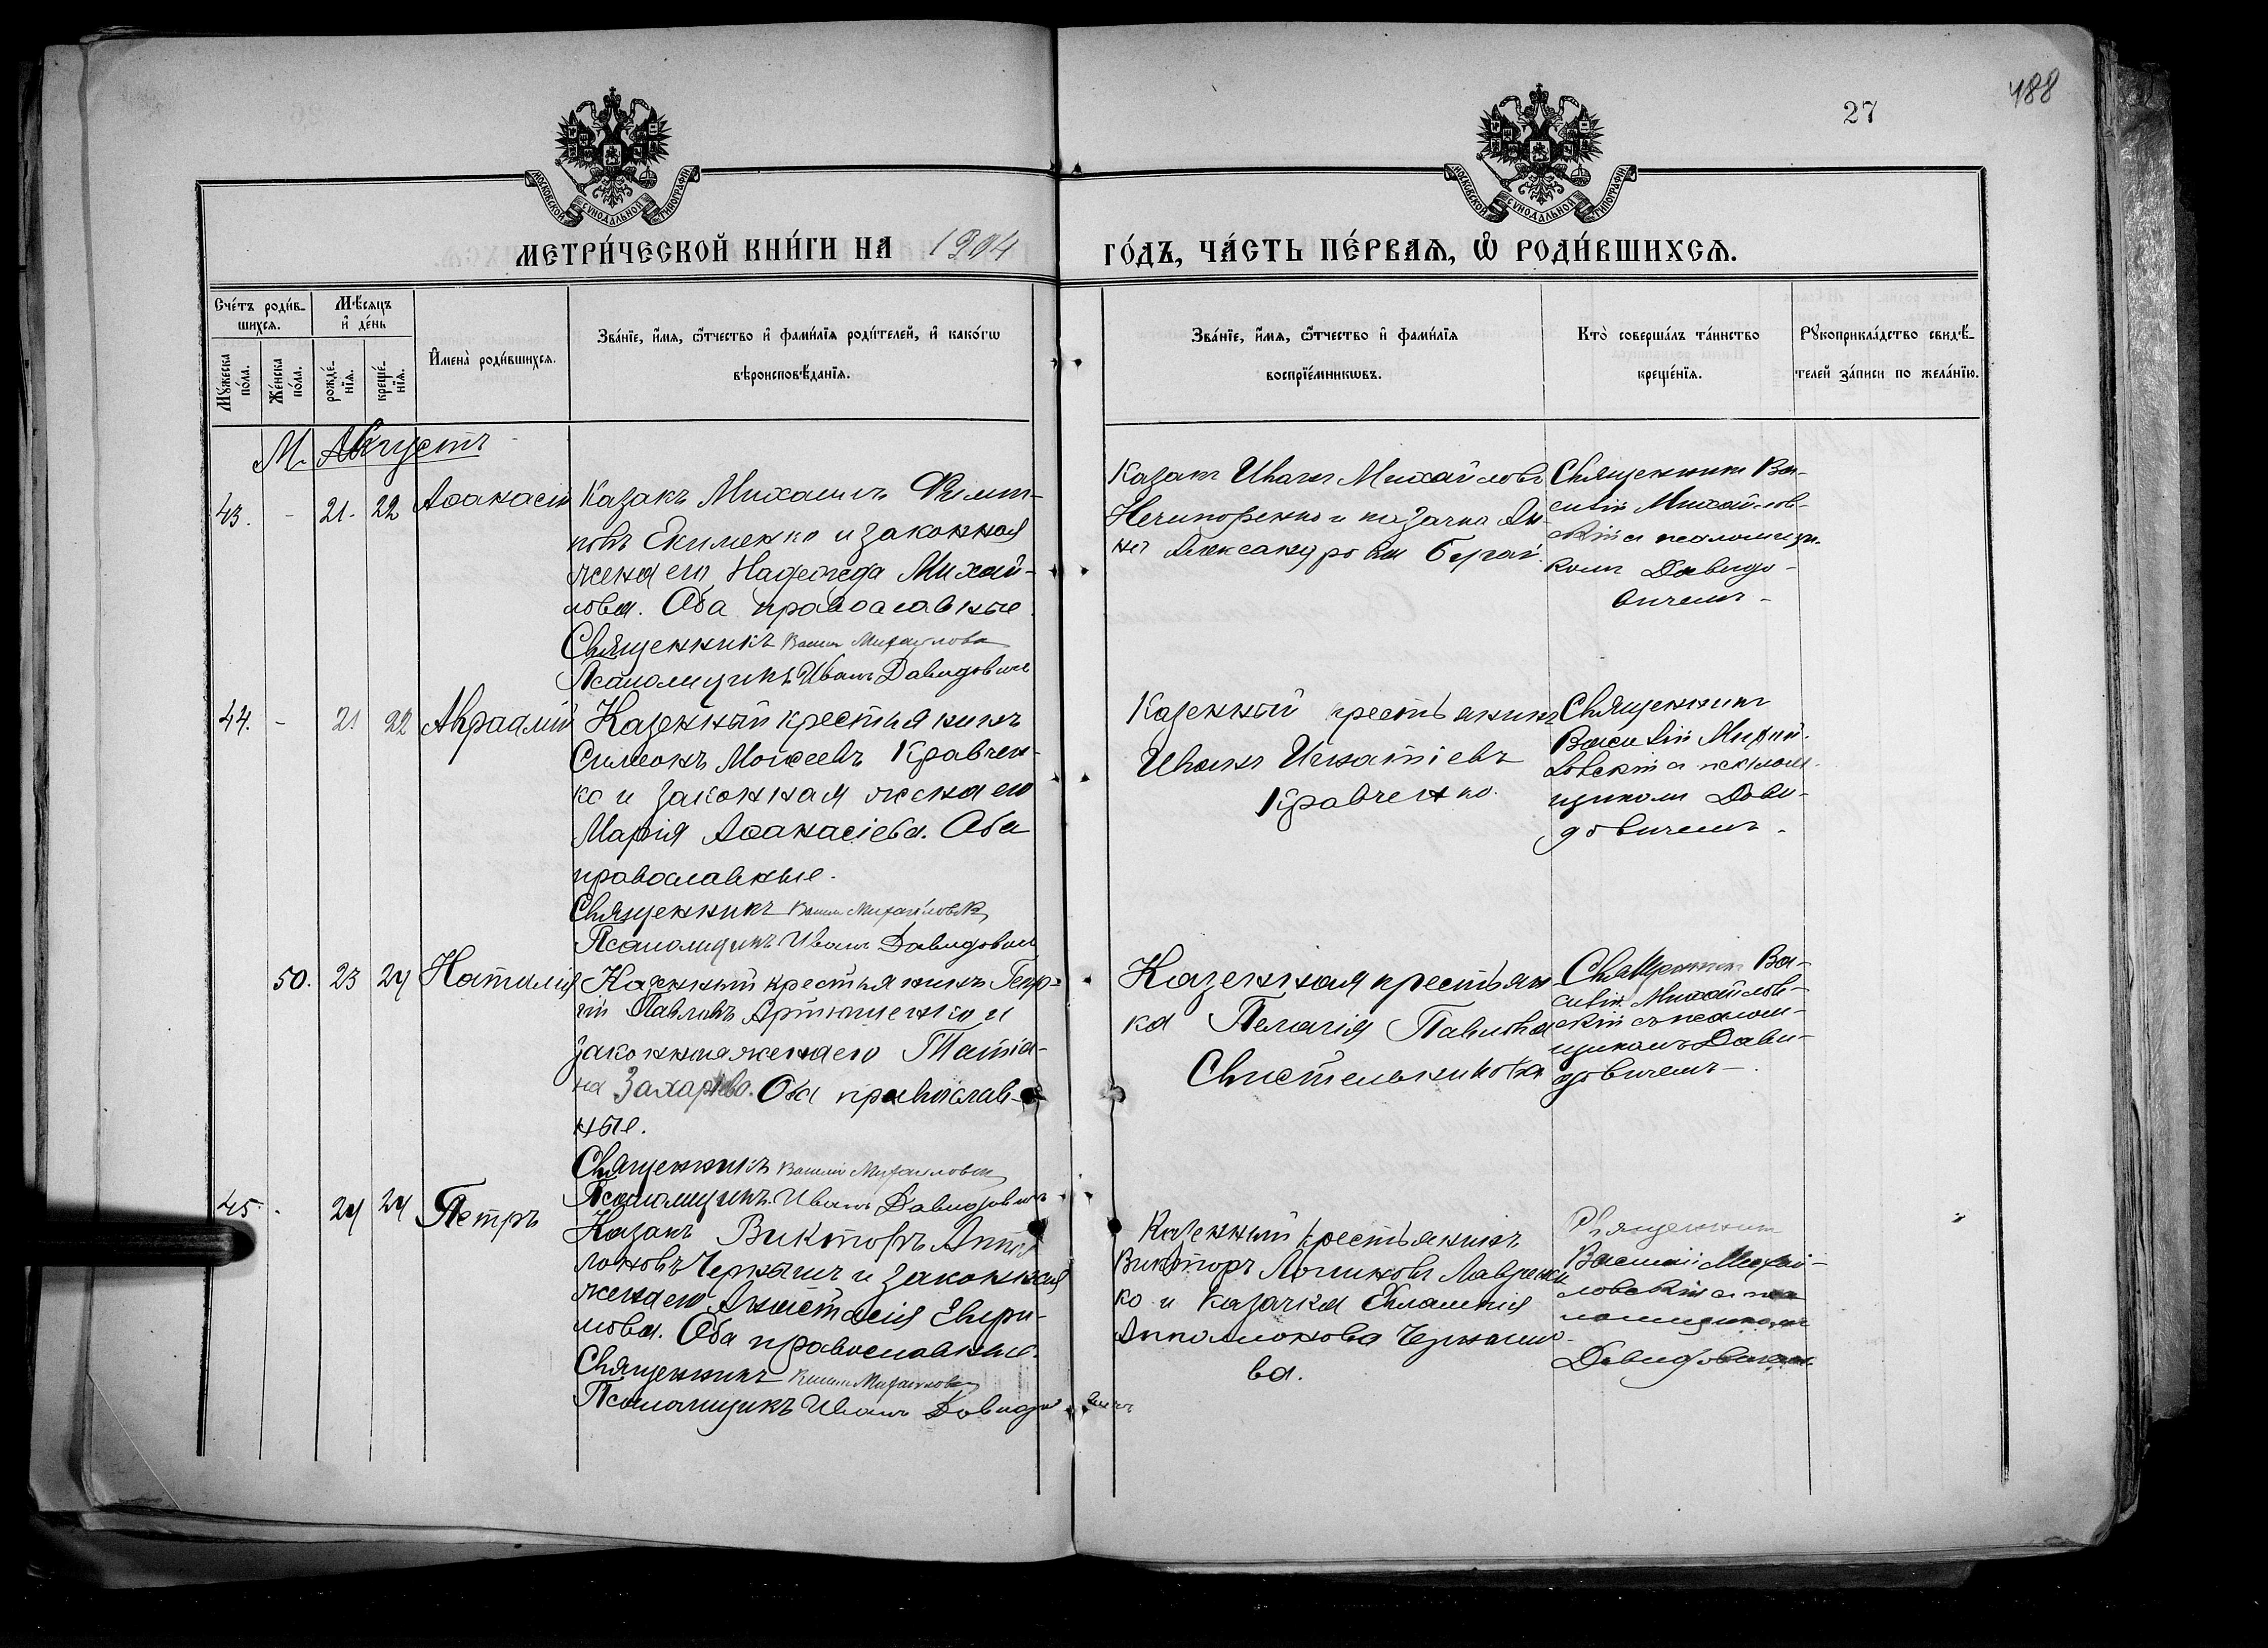 27
488
МОСКОВСКОЙ СѴНОДАЛЬНОЙ ТИПОГРАФІИ
МОСКОВСКОЙ СѴНОДАЛЬНОЙ ТИПОГРАФІИ
МЕТРИ́ЧЕСКОЙ КНИ́ГИ НА 1904
ГО́ДЪ, ЧА́СТЬ ПЕ́РВАѦ, Ѽ РОДИ́ВШИХСѦ.
Сче́тъ роди́в-
шихсѧ.
Мѣ́сѧцъ
и҆ де́нь
Мꙋ́жеска
по́ла.
Же́нска
по́ла.
рожде́-
нїѧ.
креще́-
нїѧ.
И҆мена̀ роди́вшихсѧ.
Зва́нїе, и҆́мѧ, ѻ҆́тчество и҆ фами́лїѧ роди́телей, и҆ како́гѡ
вѣроисповѣ́данїѧ.
Зва́нїе, и҆́мѧ, ѻ҆́тчество и҆ фами́лїѧ
воспрїе́мникѡвъ.
Кто̀ соверша́лъ та́инство
креще́нїѧ.
Рꙋкоприкла́дство свидѣ́-
телей за́писи по жела́нїю.
М. Августъ
43. - 21. 22 Аѳанасій
Казакъ Михаилъ Филип-
повъ Екименко и законная
жена его Надежда Михай-
лова. Оба православные
Священникъ Василій Михайловскій
Псаломщикъ Иванъ Давидовичъ
Казакъ Иванъ Михайловъ
Нечипоренко и казачка Ан-
на Александрова
Священникъ Ва-
силій Михайлов-
скій съ псаломщи-
комъ Давидо-
вичемъ
44. - 21 22 Авраамій
Казенный крестьянинъ
Симеонъ Моисеевъ Кравчен-
ко и законная жена его
Марія Аѳанасіева. Оба
православные.
Священникъ Василій Михайловскій
Псаломщикъ Иванъ Давидович
Казенный крестьянинъ
Иванъ Игнатіевъ
Кравченко.
Священникъ
Василій Михай-
ловскій съ псалом-
щикомъ Дави-
довичемъ.
50. 23 24 Наталія
Казенный крестьянинъ Геор-
гій Павловъ Артюшенко и
законная жена его Татіа-
на Захарьева. Оба православ-
ные.
Священникъ Василій Михайловскій
Псаломщикъ Иванъ Давидовичъ
Казенная крестьян
ка Пелагія Павлова
Свистельникова
Священникъ Ва-
силій Михайлов-
скій съ псалом-
щикомъ Дави-
довичемъ
45. - 24 24 Петръ
Казакъ Викторъ Аппол
лоновъ Черкашинъ и законная
жена его Анастасія Ефри-
мова. Оба православные.
Священникъ Василій Михайловскій
Псаломщикъ Иванъ Давидовичъ
Казенный крестьянинъ
Викторъ Логиновъ Лаврен
ко и казачка Евлампія
Апполлонова Черкашино-
ва.
Священникъ
Василій Михай-
ловскій съ пса
ломщикомъ
Давидовичемъ